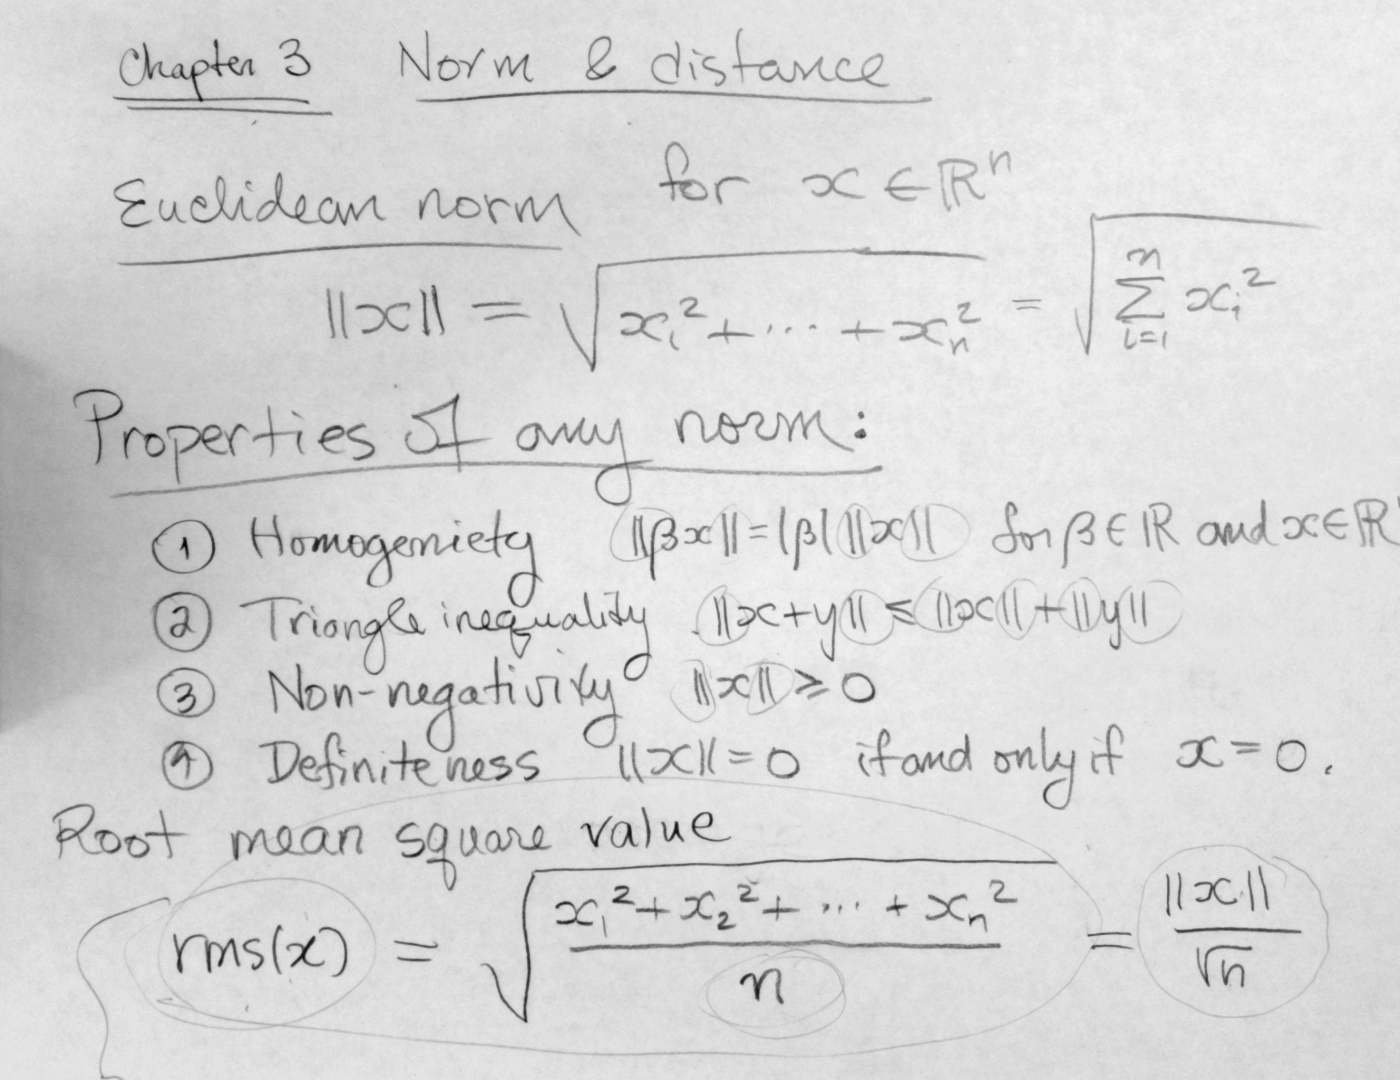 Chapter 3 Norm & distance
Euclidean norm for x ∈ ℝⁿ
||x|| = √(x₁² + ··· + xₙ²) = √(∑ᵢ₌₁ⁿ xᵢ²)
Properties of any norm:
① Homogeniety ||βx|| = |β| ||x|| for β ∈ ℝ and x ∈ ℝⁿ
② Triangle inequality ||x+y|| ≤ ||x|| + ||y||
③ Non-negativity ||x|| ≥ 0
④ Definiteness ||x|| = 0 if and only if x = 0.
Root mean square value
rms(x) = √((x₁² + x₂² + ··· + xₙ²)/n) = ||x||/√n